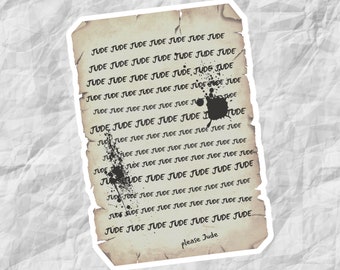 JUDE JUDE JUDE JUDE JUDE JUDE JUDE
JUDE JUDE JUDE JUDE JUDE JUDE JUDE
JUDE JUDE JUDE JUDE JUDE JUDE JUDE
JUDE JUDE JUDE JUDE JUDE JUDE JUDE JUDE
JUDE JUDE JUDE JUDE JUDE JUDE JUDE JUDE
JUDE JUDE JUDE JUDE JUDE JUDE JUDE
JUDE JUDE JUDE JUDE JUDE JUDE JUDE JUDE
JUDE JUDE JUDE JUDE JUDE JUDE JUDE JUDE
JUDE JUDE JUDE JUDE JUDE JUDE JUDE JUDE
JUDE JUDE JUDE JUDE JUDE JUDE JUDE
JUDE JUDE JUDE JUDE JUDE JUDE JUDE JUDE
JUDE JUDE JUDE JUDE JUDE JUDE JUDE JUDE
JUDE JUDE JUDE JUDE JUDE JUDE JUDE
please Jude